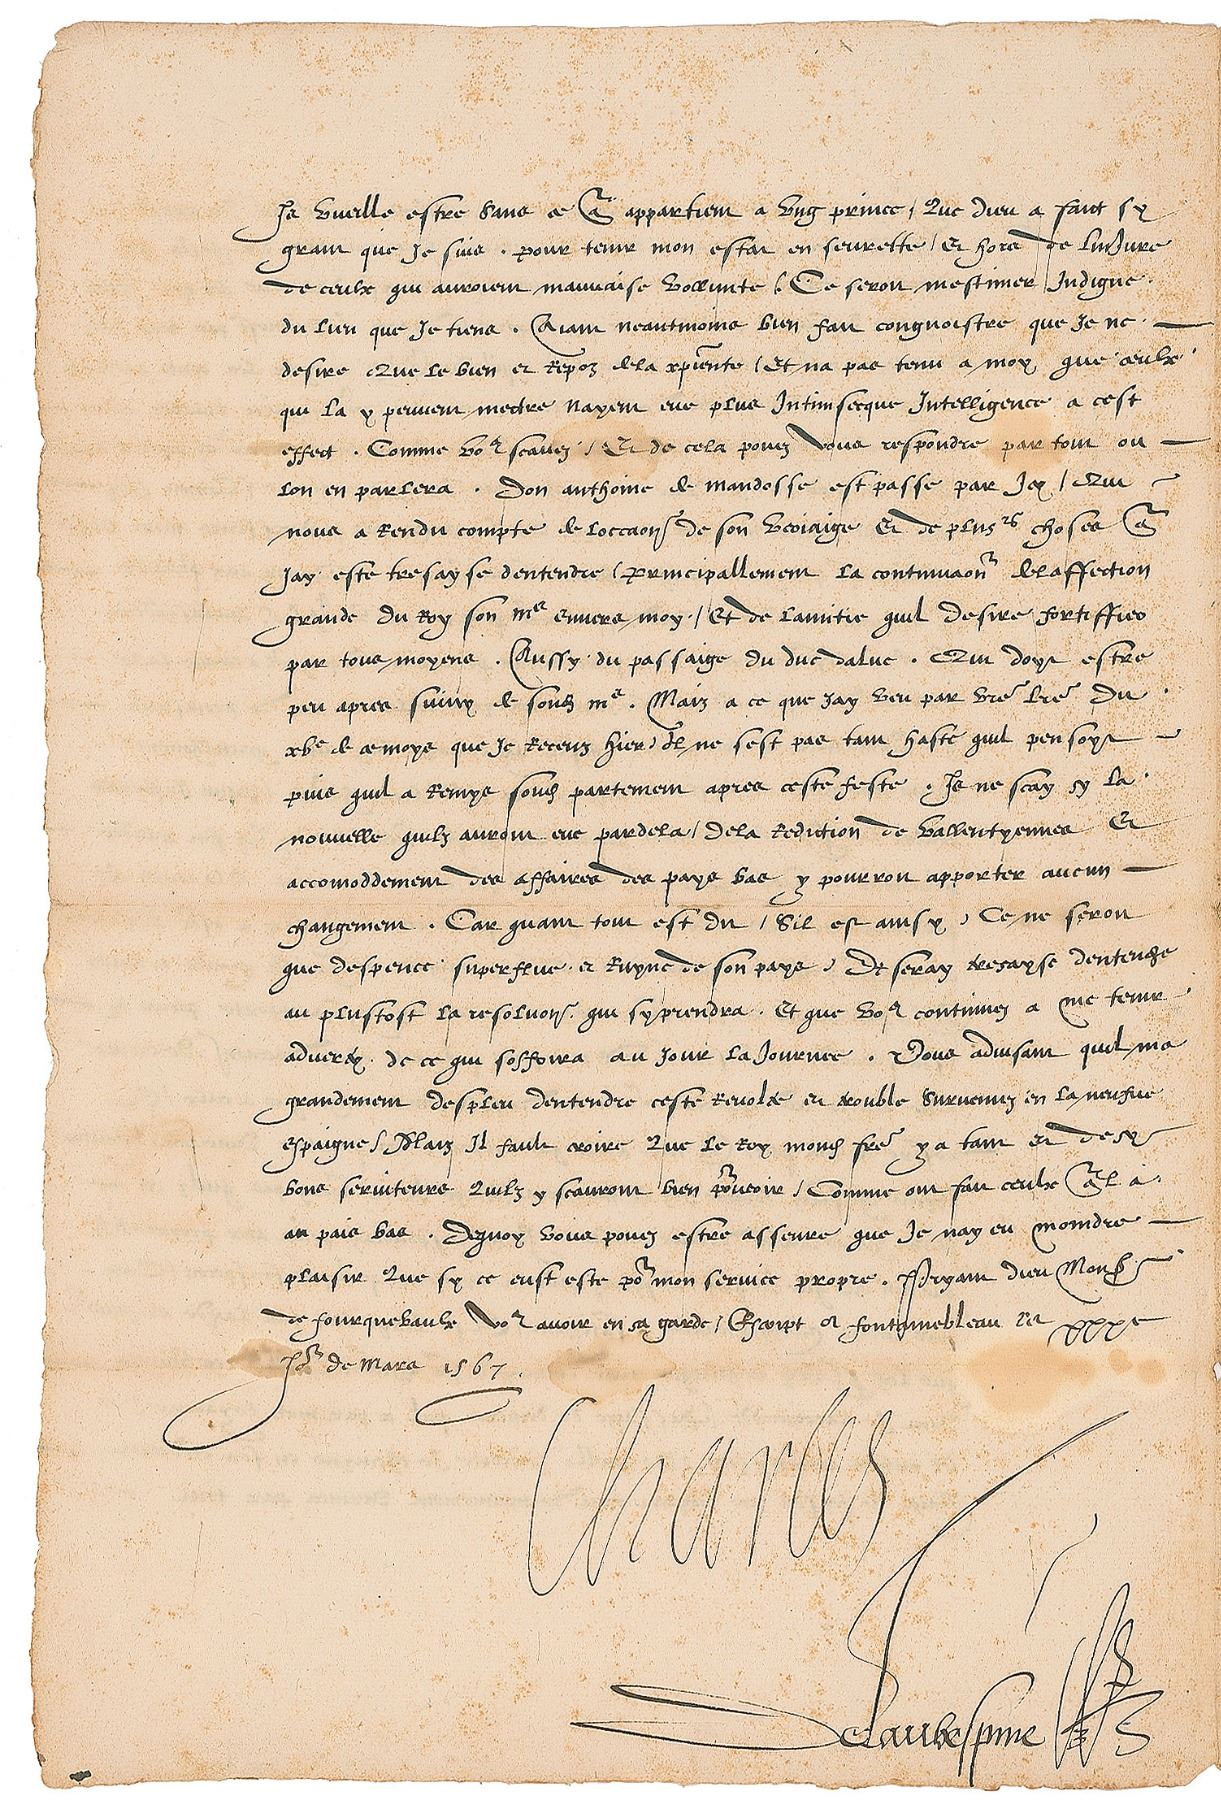 Je vueille estre sans ce q̃ appartient a ung prince / Que dieu a faict sy
grant que Je suis . pour tenir mon estat en seurette / Et hors de linJure
de ceulx qui auroient mauvaise vollunte / Ce seroit mestimer Indigne
du lieu que Je tiens . Aiant neantmoins bien fait congnoistre que Je ne
desire Que le bien et Repoz dela xpiente / Et na pas tenu a moy que ceulx
qui la y peuvent mectre nayent eue plus Intinsecque Intelligence a cest
effect . Comme vos scavez / Et de cela povez vous respondre par tout ou
lon en parlera . Don anthoine de mandosse est passe par Icy / Qui
nous a Rendu compte de loccaon de son veoiaige Et de plusrs choses q̃
Jay este tresayse dentendre / principallement la continuaon delaffection
grande du Roy son me envers moy / Et de lamitie quil desire fortiffier
par tous moyens . Aussy du passaige du duc dalve . Qui doyt estre
peu apres suivy de sond me . Mais a ce que Jay veu par vre lre du
xve de ce moys que Je Receuz hier / Il ne sest pas tant haste quil pensoyt
puis quil a Remys sond partement apres ceste feste . Je ne scay sy la
nouvelle quilz auront eue pardela / dela Rediction de vallentyennes Et
accomoddement des affaires des pays bas y pourront apporter aucun
changement . Car quant tout est dit / Sil est ainsy / Ce ne seroit
que despence superflue et Ruyne de son pays / Et seray tresayse dentendre
au plustost la resoluon qui sy prendra . Et que vos continuez a me tenir
adverty de ce qui soffrira au Jour la Journee . Vous advisant quil ma
grandement despleu dentendre ceste Revolte et trouble survenuz en la neufve
espaigne / Mais Il fault croire Que le Roy mond fre y a tant Et de sy
bons serviteurs Quilz y scauront bien pourveoir / Comme ont fait ceulx q̃l a
au pais bas . Dequoy vous povez estre asseure que Je nay eu moindre
plaisir Que sy ce eust este por mon service propre . Pryant dieu Monsr
de fourquevaulx vos avoir en sa garde / Escript a fontainebleau le xxxe
Jor de Mars 1567 .
Charles
Delaubespine